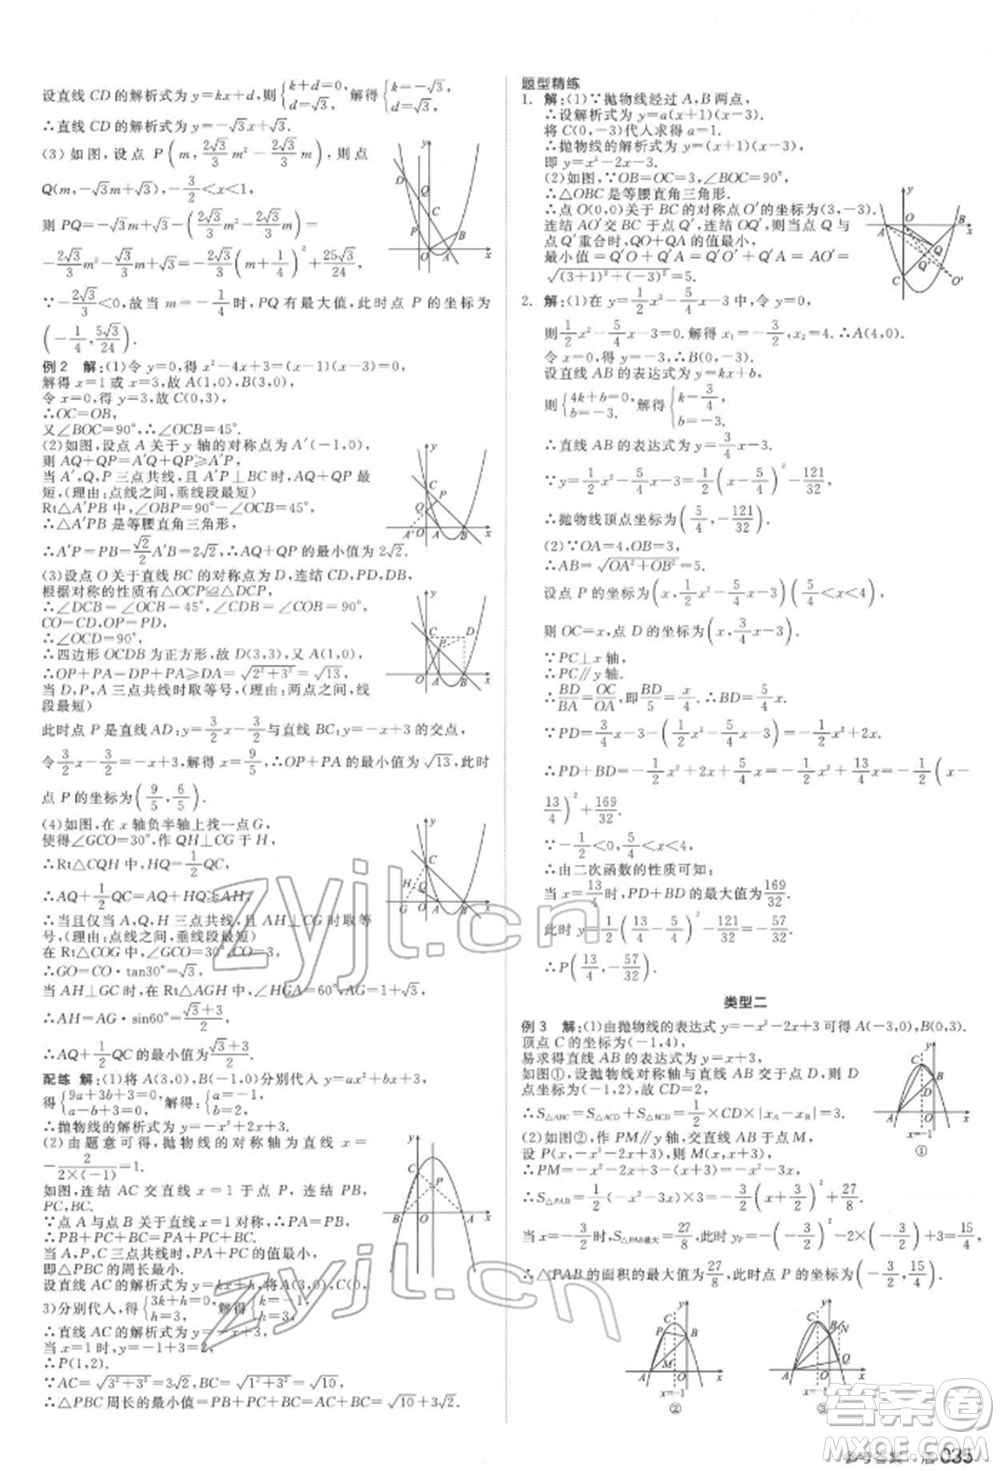 设直线 CD 的解析式为 y=kx+d,则{k+d=0, d=√3, 解得{k=-√3, d=√3.
∴直线 CD 的解析式为 y=-√3x+√3.
(3)如图,设点 P(m, 2√3/3 m²-√3/3 m-√3/3),则点
Q(m,-√3m+√3),-3/2<m<0.
则 PQ=-√3m+√3-(2√3/3 m²-√3/3 m-√3/3)=
-2√3/3 m²-2√3/3 m+4√3/3
∵-2√3/3<0,故当 m=-1/4 时,PQ 有最大值,此时点 P 的坐标为
(-1/4, 5√3/24).
例 2 解:(1)令 y=0,得 x²-4x+3=0,
解得 x=1 或 x=3,故 A(1,0),B(3,0).
令 x=0,得 y=3,故 C(0,3),
∴OC=OB,
又∠BOC=90°,∴∠OCB=45°.
(2)如图,设点 A 关于 y 轴的对称点为 A′(-1,0),
则 AQ+QP=A′Q+QP≥A′P,
当 A′,Q,P 三点共线,且 A′P⊥BC 时取等号,
(理由:点线之间,垂线段最短)
Rt△A′PB 中,∠OBP=90°-∠OCB=45°,
∴△A′PB 是等腰直角三角形,
∴A′P=PB=√2/2 A′B=2√2,∴AQ+QP 的最小值为 2√2.
(3)设点 O 关于直线 BC 的对称点为 D,连结 CD,PD,
根据对称的性质有△OCP≌△DCP,
∴∠DCB=∠OCB=45°,
CO=CD,OP=PD,
∴∠OCD=90°,
∴四边形 OCDB 为正方形,故 D(3,3),又 A(1,0),
∴OP+PA=PD+PA≥DA=√(2²+3²)=√13,
当 D,P,A 三点共线时取等号,(理由:两点之间,线
段最短)
此时点 P 是直线 AD:y=3/2x-3/2与直线 BC:y=-x+3 的交点,
令3/2x-3/2=-x+3,解得 x=9/5,∴OP+PA 的最小值为√13,此时
点 P 的坐标为(9/5,6/5).
(4)如图,在 x 轴负半轴上找一点 G,
使得∠GCO=30°,作 QH⊥CG 于点 H,
∴Rt△CQH 中,QH=1/2QC,
∴AQ+1/2QC=AQ+QH≥AH,
∴当且仅当 A,Q,H 三点共线,且 AH⊥CG 时取等
号,(理由:点线之间,垂线段最短)
在 Rt△COG 中,∠GCO=30°,CO=3,
∴GO=CO·tan30°=√3,
当 AH⊥GC 时,Rt△AGH 中,∠HGA=60°,AG=√3+1,
∴AH=AG·sin60°=(√3+3)/2,
∴AQ+1/2QC 的最小值为(√3+3)/2.
配练 解:(1)将 A(3,0),B(-1,0)分别代入 y=ax²+bx+3,
得{9a+3b+3=0, a-b+3=0, 解得:{a=-1, b=2.
∴抛物线的解析式为 y=-x²+2x+3.
(2)由题意可得,抛物线的对称轴为直线 x=
-2/(2×(-1))=1.
如图,连结 AC 交直线 x=1 于点 P,连结
PC,BC.
∵点 A 与点 B 关于直线 x=1 对称,∴PB=PA,
∴PB+PC+BC=PA+PC+BC,
当 A,P,C 三点共线时,PA+PC 的值最小,
即△PBC 的周长最小.
设直线 AC 的解析式为 y=kx+h,将 A(3,0),C(0,
3)分别代入,得{3k+h=0, h=3, 解得{k=-1, h=3.
∴直线 AC 的解析式为 y=-x+3.
当 x=1 时,y=2,
∴P(1,2).
∵AC=√(3²+3²)=3√2,BC=√(1²+3²)=√10,
∴△PBC 周长的最小值=PB+PC+BC=AC+BC=√10+3√2.
题型精练
1. 解:(1)∵抛物线经过 A,B 两点,
∴设解析式为 y=a(x+1)(x-3).
将 C(0,-3)代入求得 a=1.
∴抛物线的解析式为 y=(x+1)(x-3),
即 y=x²-2x-3.
(2)如图,∵OB=OC=3,∠BOC=90°,
∴△OBC 是等腰直角三角形.
∴点 O(0,0)关于 BC 的对称点 O′的坐标为(3,-3),
连结 AO′交 BC 于点 Q′,连结 OQ′,则当点 Q 与
点 Q′重合时,QO+QA 的值最小,
最小值=Q′O+Q′A=Q′O′+Q′A=AO′=
√((3+1)²+(-3)²)=5.
2. 解:(1)在 y=1/2x²-5/4x-3 中,令 y=0,
则1/2x²-5/4x-3=0.解得 x₁=-3/2,x₂=4.∴A(4,0).
令 x=0,则 y=-3.∴B(0,-3).
设直线 AB 的表达式为 y=kx+b,
则{4k+b=0, b=-3. 解得{k=3/4, b=-3.
∴直线 AB 的表达式为 y=3/4x-3.
∵y=1/2x²-5/4x-3=1/2(x-5/4)²-121/32,
∴抛物线顶点坐标为(5/4,-121/32).
(2)∵OA=4,OB=3,
∴AB=√(OA²+OB²)=5.
设点 P 的坐标为(x,1/2x²-5/4x-3)(5/4<x<4),
则 OC=x,点 D 的坐标为(x,3/4x-3).
∵PC⊥x 轴,
∴PC∥y 轴.
∴BD/BA=OC/OA,即BD/5=x/4.∴BD=5/4x.
∵PD=3/4x-3-(1/2x²-5/4x-3)=-1/2x²+2x.
∴PD+BD=-1/2x²+2x+5/4x=-1/2x²+13/4x=-1/2(x-
13/4)²+169/32.
∵-1/2<0,5/4<x<4,
∴由二次函数的性质可知:
当 x=13/4时,PD+BD 的最大值为169/32.
此时1/2x²-5/4x-3=1/2×(13/4)²-5/4×13/4-3=-57/32.
∴P(13/4,-57/32).
类型二
例 3 解:(1)由抛物线的表达式 y=-x²-2x+3 可得 A(-3,0),B(0,3).
顶点 C 的坐标为(-1,4),
易求得直线 AB 的解析式为 y=x+3.
如图①,设抛物线的对称轴与直线 AB 交于点 D,则 D
点坐标为(-1,2),故 CD=2,
∴S△ABC=S△ACD+S△BCD=1/2×CD×|xA-xB|=3.
(2)如图②,作 PM∥y 轴,交直线 AB 于点 M,
设 P(x,-x²-2x+3),则 M(x,x+3),
∴PM=-x²-2x+3-(x+3)=-x²-3x,
∴S△PAB=1/2×(-x²-3x)×3=-3/2(x+3/2)²+27/8.
当 x=-3/2时,S△PAB最大=27/8,此时 yP=-(-3/2)²-2×(-3/2)+3=15/4,
∴△PAB 的面积的最大值为27/8,此时点 P 的坐标为(-3/2,15/4).
x=-1
①
x=-1
②
x=-1
③
zyjl.cn
zyjl.cn
答案圈
参考答案
035